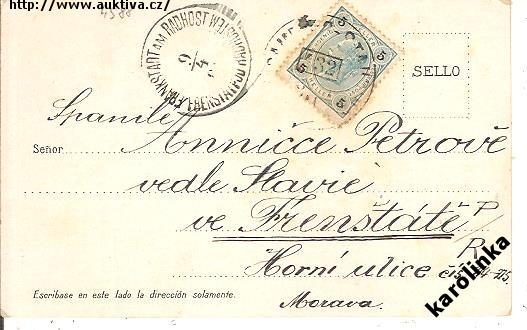 http://www.auktiva.cz/
4388
FRANKSTADT AM RADHOST
FRENSTAT POD RADHOSTEM
9/4
5 5
HELLER
32
5 5
SELLO
Spanilé
Señor Anničce Petrově
vedle Slavie
ve Frenštátě P/R.
Horní ulice čís.
Morava.
Escribase en este lado la dirección solamente.
karolinka